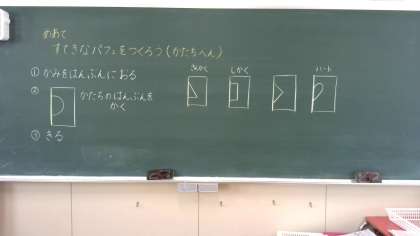 めあて
すてきなパフェをつくろう(かたちへん)
①かみをはんぶんにおる
②
かたちのはんぶんを
かく
③きる
さんかく
しかく
ハート